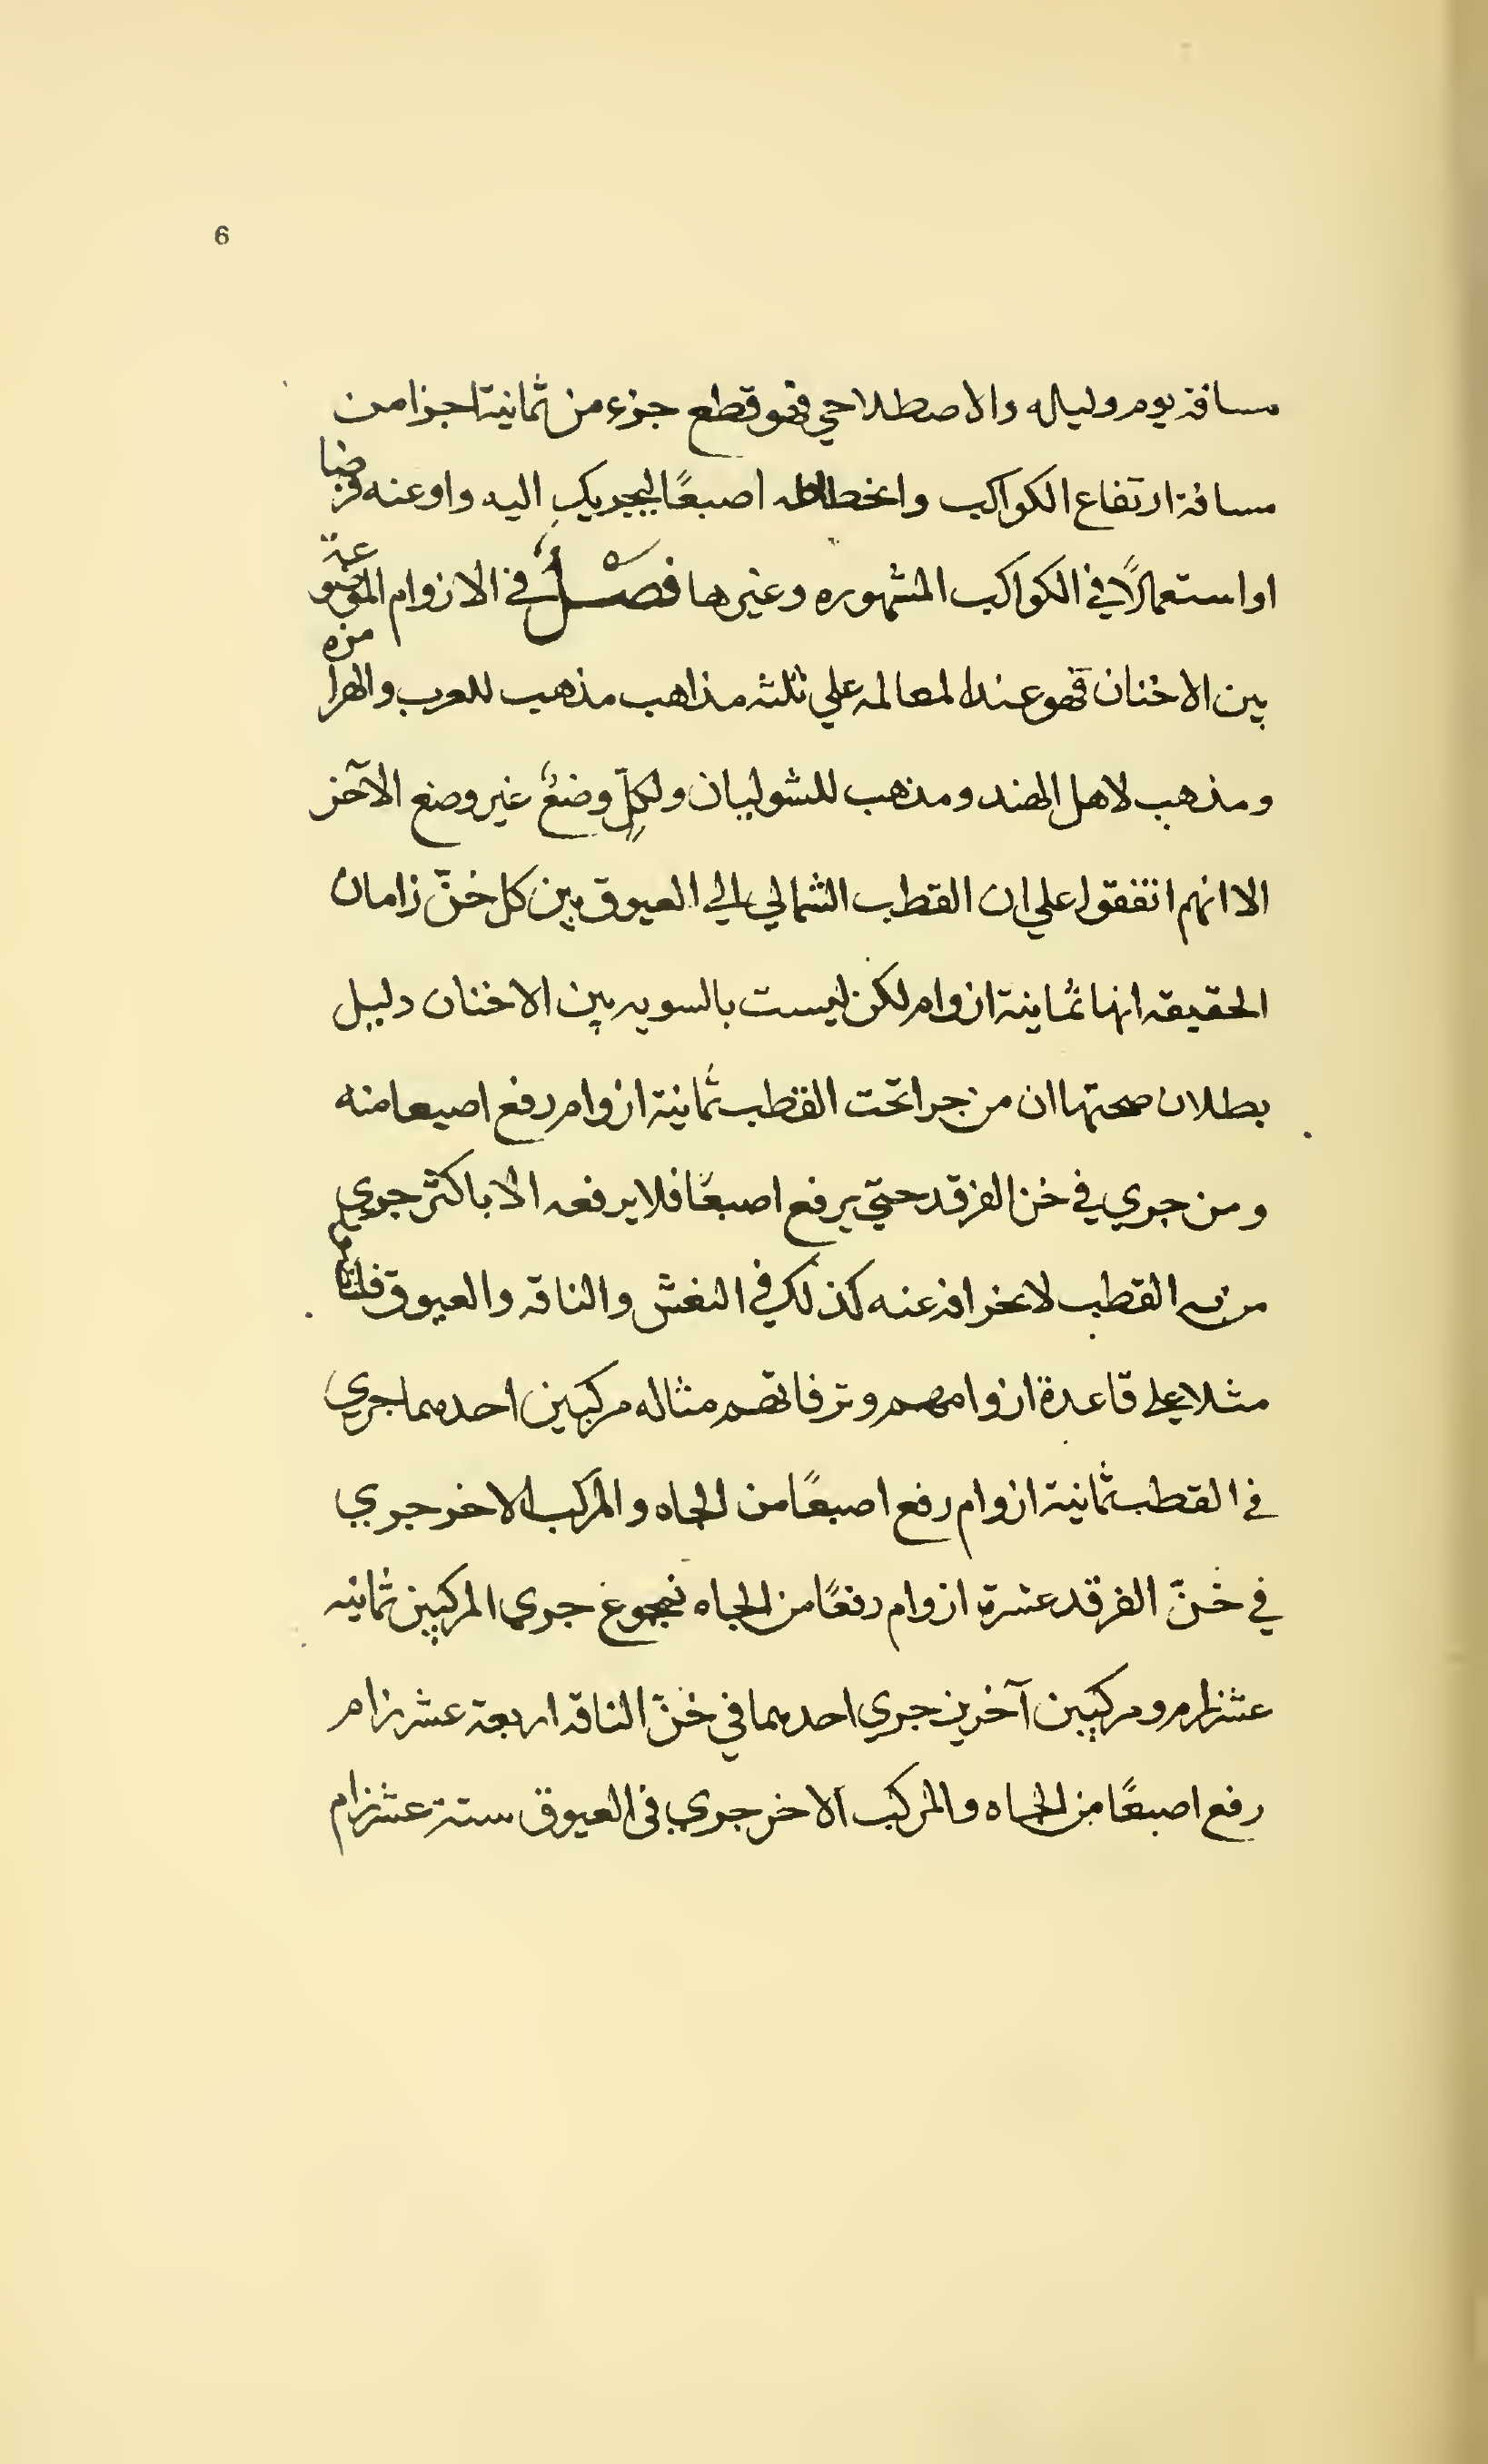 6
مسافة يوم وليله والاصطلاحي فهو قطع جزء من ثمانية اجزا من
مسافة ارتفاع الكواكب وانحطاطه اصبعًا بجريك اليه واو عنه فرضا
او استعمالًا في الكواكب المشهوره وغيرها فصل في الازوام الموضوعة
بين الاخنان فهو عند المعالمه علي ثلثه مذاهب مذهب للعرب والهرامزه
ومذهب لاهل الهند ومذهب للشوليان ولكلٍّ وضعٌ غير وضع الآخر
الا انهم اتفقوا علي ان القطب الشمالي الي العيوق بين كل خنّ زامان
الحقيقه انها ثمانية ازوام لكن ليست بالسويه بين الاخنان دليل
بطلان صحتها ان من جرا تحت القطب ثمانية ازوام رفع اصبعا منه
ومن جري في خن الفرقد حتي يرفع اصبعًا فلا يرفعه الا باكثر جري
من القطب لانحرافه عنه كذلك في النعش والناقه والعيوق
مثلا علي قاعدة ازوامهم وترفاتهم مثاله مركبين احدهما جري
في القطب ثمانية ازوام رفع اصبعًا من الجاه والمركب الاخر جري
في خنّ الفرقد عشرة ازوام رفعًا من الجاه فمجموع جري المركبين ثمانيه
عشر زام ومركبين آخرين جري احدهما في خنّ الناقه اربعة عشر زام
رفع اصبعًا من الجاه والمركب الاخر جري في العيوق ستة عشر زام